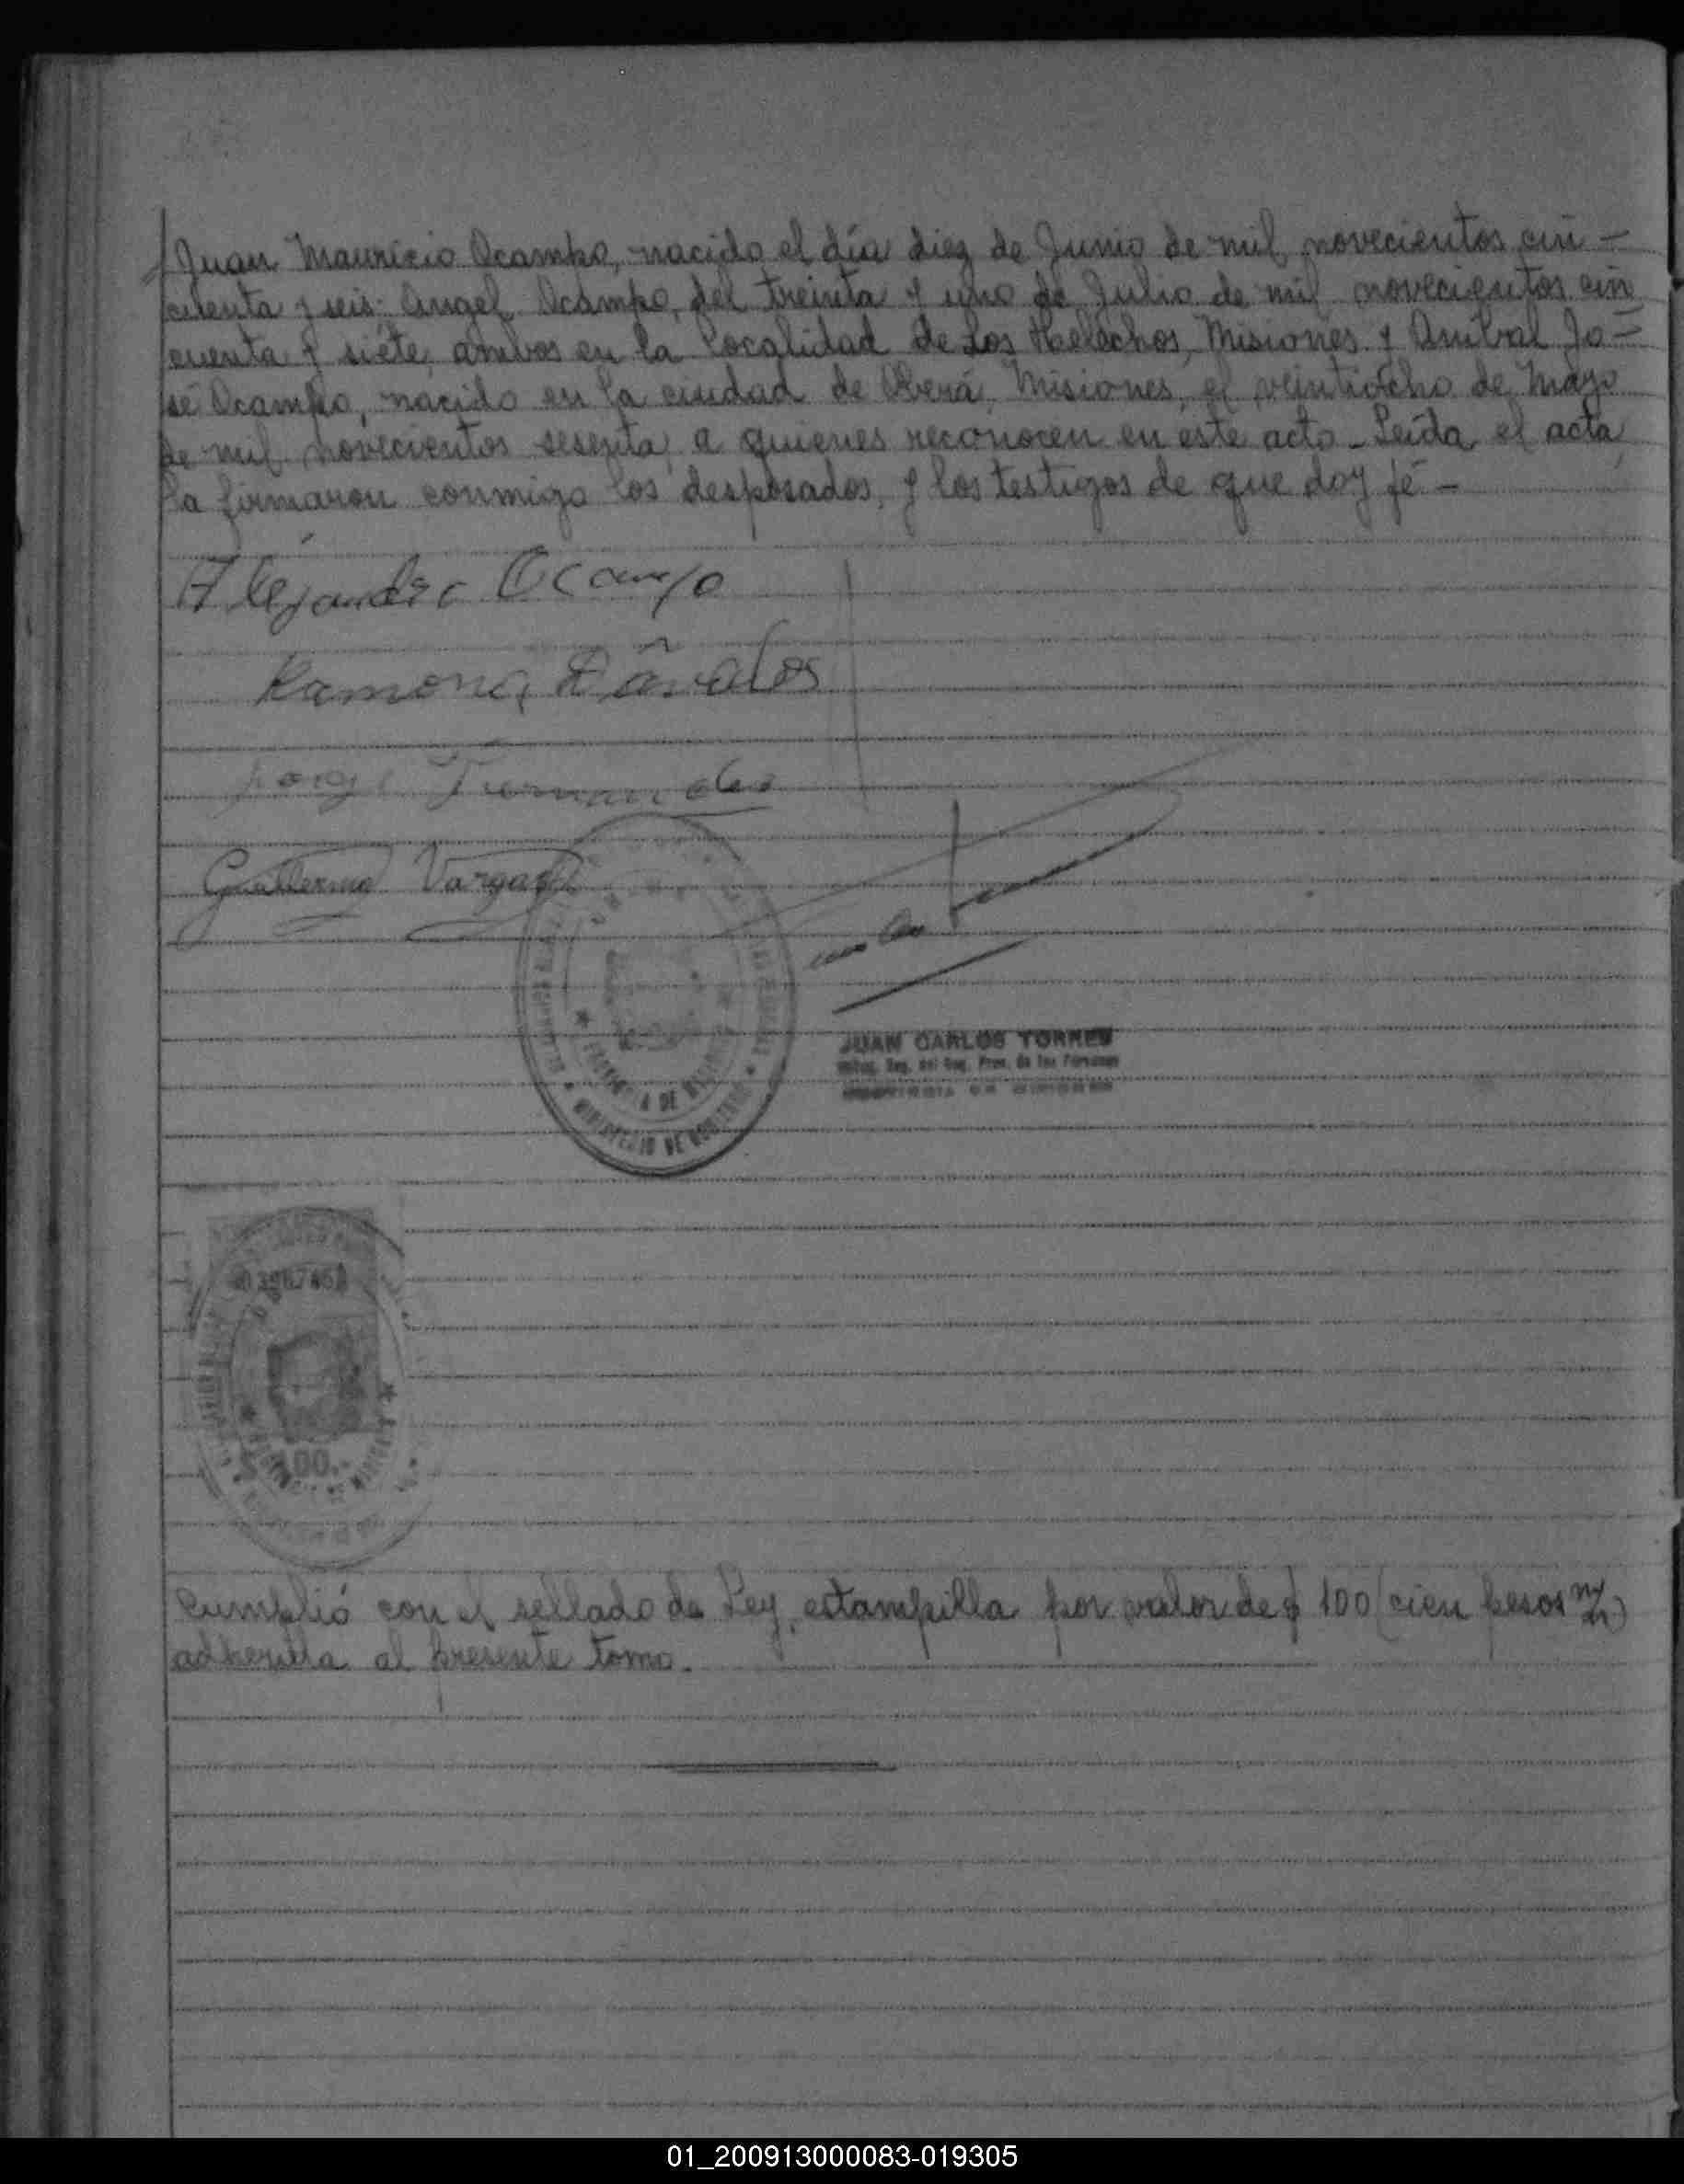 Juan Mauricio Ocampo, nacido el día diez de Junio de mil novecientos cin -
cuenta y seis; Angel Ocampo, del treinta y uno de Julio de mil novecientos cin
cuenta y siete, ambos en la localidad de Los Helechos, Misiones y Anibal Jo -
sé Ocampo, nacido en la ciudad de Oberá, Misiones, el veintiocho de Mayo
de mil novecientos sesenta, a quienes reconocen en este acto - Leída el acta,
la firmaron conmigo los desposados, y los testigos de que doy fé -
Alejandro Ocampo
Ramona Dávalos
Guillermo Vargas
JUAN CARLOS TORRES
MINISTERIO DE GOBIERNO
$ 100.-
Cumplió con el sellado de Ley, estampilla por valor de $ 100 (cien pesos m/n)
adherida al presente tomo.
01_200913000083-019305